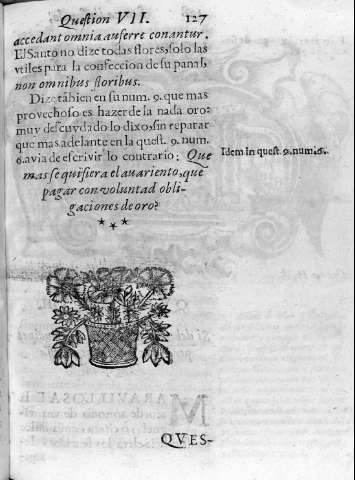 Question VII. 127
accedant omnia auferre conantur.
El Santo no dize todas flores, solo las
vtiles para la confeccion de su panal,
non omnibus floribus.
Dize tãbien en su num. 9. que mas
provechoso es hazer de la nada oro:
muy descuydado lo dixo, sin reparar
que mas adelante en la quest. 9. num.
6. avia de escrivir lo contrario: Que
mas se quisiera el avariento, que
pagar con voluntad obli-
gaciones de oro?
Idem in quest. 9. num. 6.
QVES-